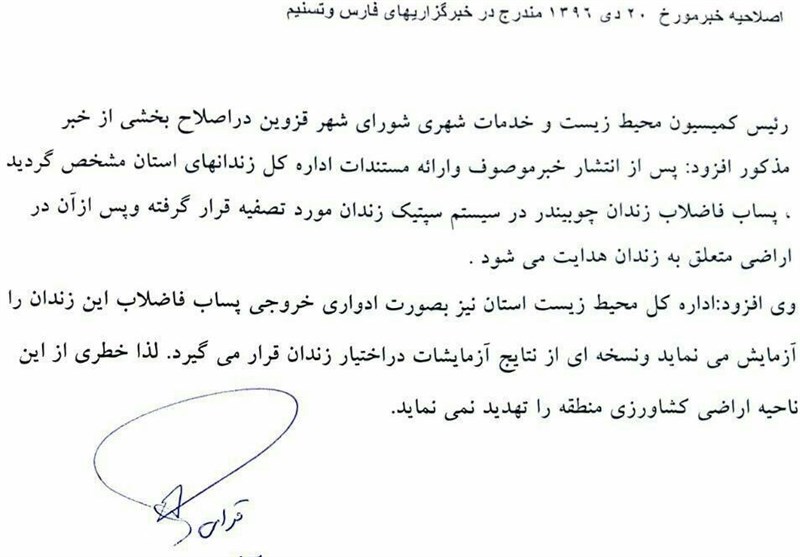 اصلاحیه خبرمورخ ۲۰ دی ۱۳۹۶ مندرج در خبرگزاریهای فارس وتسنیم
رئیس کمیسیون محیط زیست و خدمات شهری شورای شهر قزوین دراصلاح بخشی از خبر
مذکور افزود: پس از انتشار خبرموصوف وارائه مستندات اداره کل زندانهای استان مشخص گردید
، پساب فاضلاب زندان چوبیندر در سیستم سپتیک زندان مورد تصفیه قرار گرفته وپس ازآن در
اراضی متعلق به زندان هدایت می شود .
وی افزود:اداره کل محیط زیست استان نیز بصورت ادواری خروجی پساب فاضلاب این زندان را
آزمایش می نماید ونسخه ای از نتایج آزمایشات دراختیار زندان قرار می گیرد. لذا خطری از این
ناحیه اراضی کشاورزی منطقه را تهدید نمی نماید.